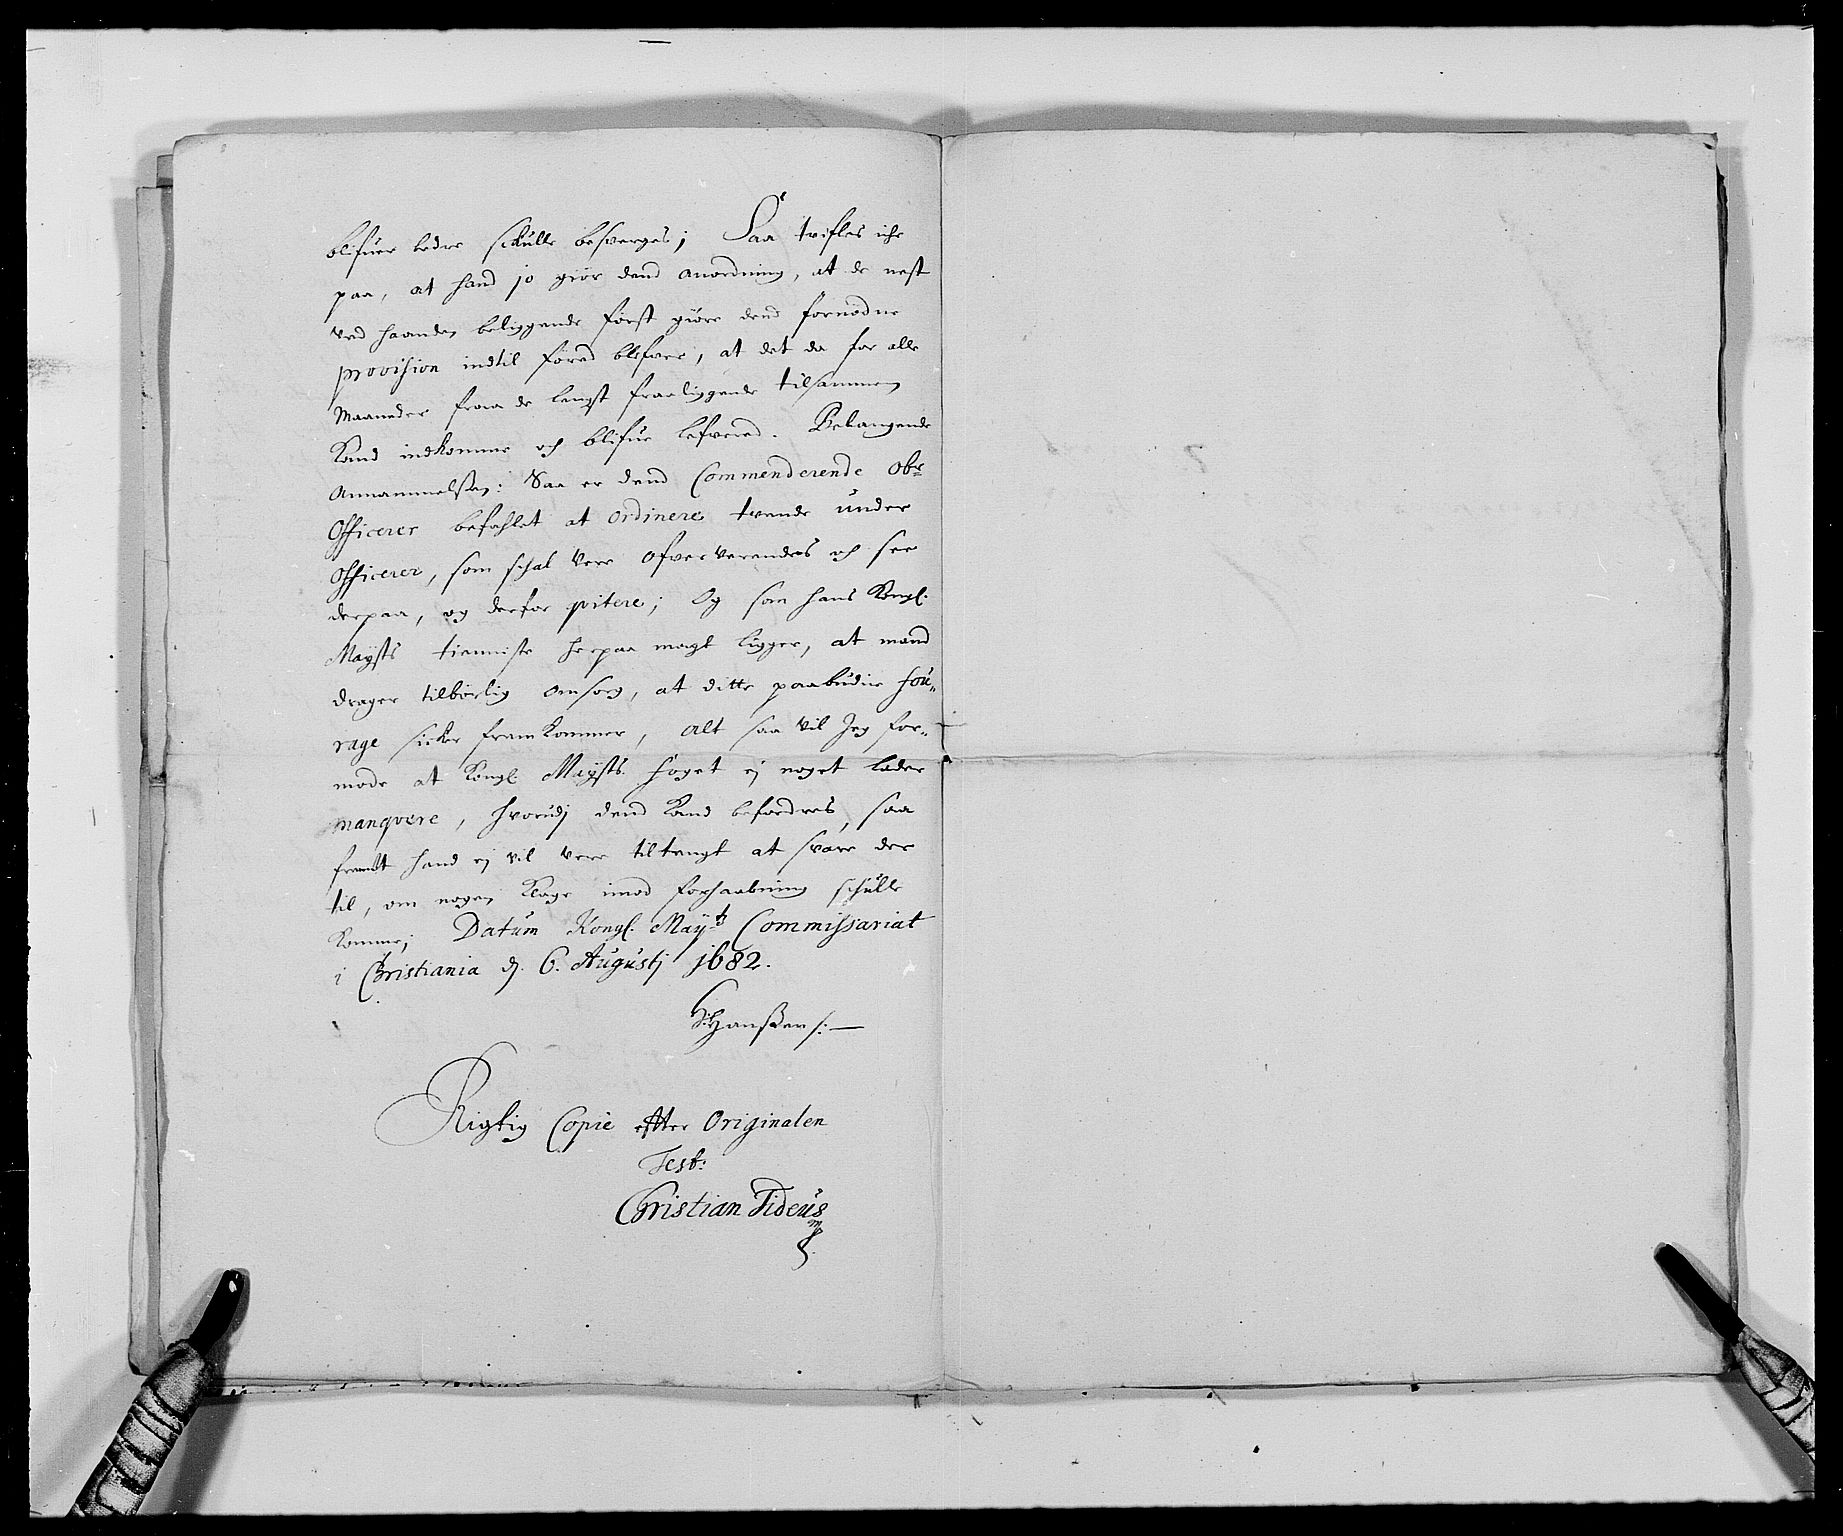 blifuer bedre schulle besverges; Saa tvifles iche
paa, at hand jo giør dend anordning, at de nest
ved haanden beliggende først giøre dend fornødne
provision indtil føred blifver, at det da for alle
Maaneder fraa de lengst fraaliggende tilsammen
Kand indkomme och blifue lefvered. Belangende
Annammelsen: Saa er dend Commenderende Obr
Officerer befahlet at ordinere tvende under
Officerer, som schal vere ofververendes och see
derpaa, og derfor qvitere; Og som hans Kongl.
Maysts tienniste herpaa magt ligger, at mand
drager tilbørlig omsorg, at ditte paabudne fou„
rage sicker fremkommer, Alt saa vil Jeg for„
mode at Kongl Maysts foget ej noget lader
manqvere, hvorudj dend Kand befordres, saa
fremt hand ej vil vere tiltengt at svare der
til, om nogen Klage imod forhaabning schulle
Komme; Datum Kongl. Mayts Commissariat
i Christiania dj. 6. Augustj 1682.
Hanssen /:
Rigtig Copie effter Originalen
Test:
Christian Tideus
mp